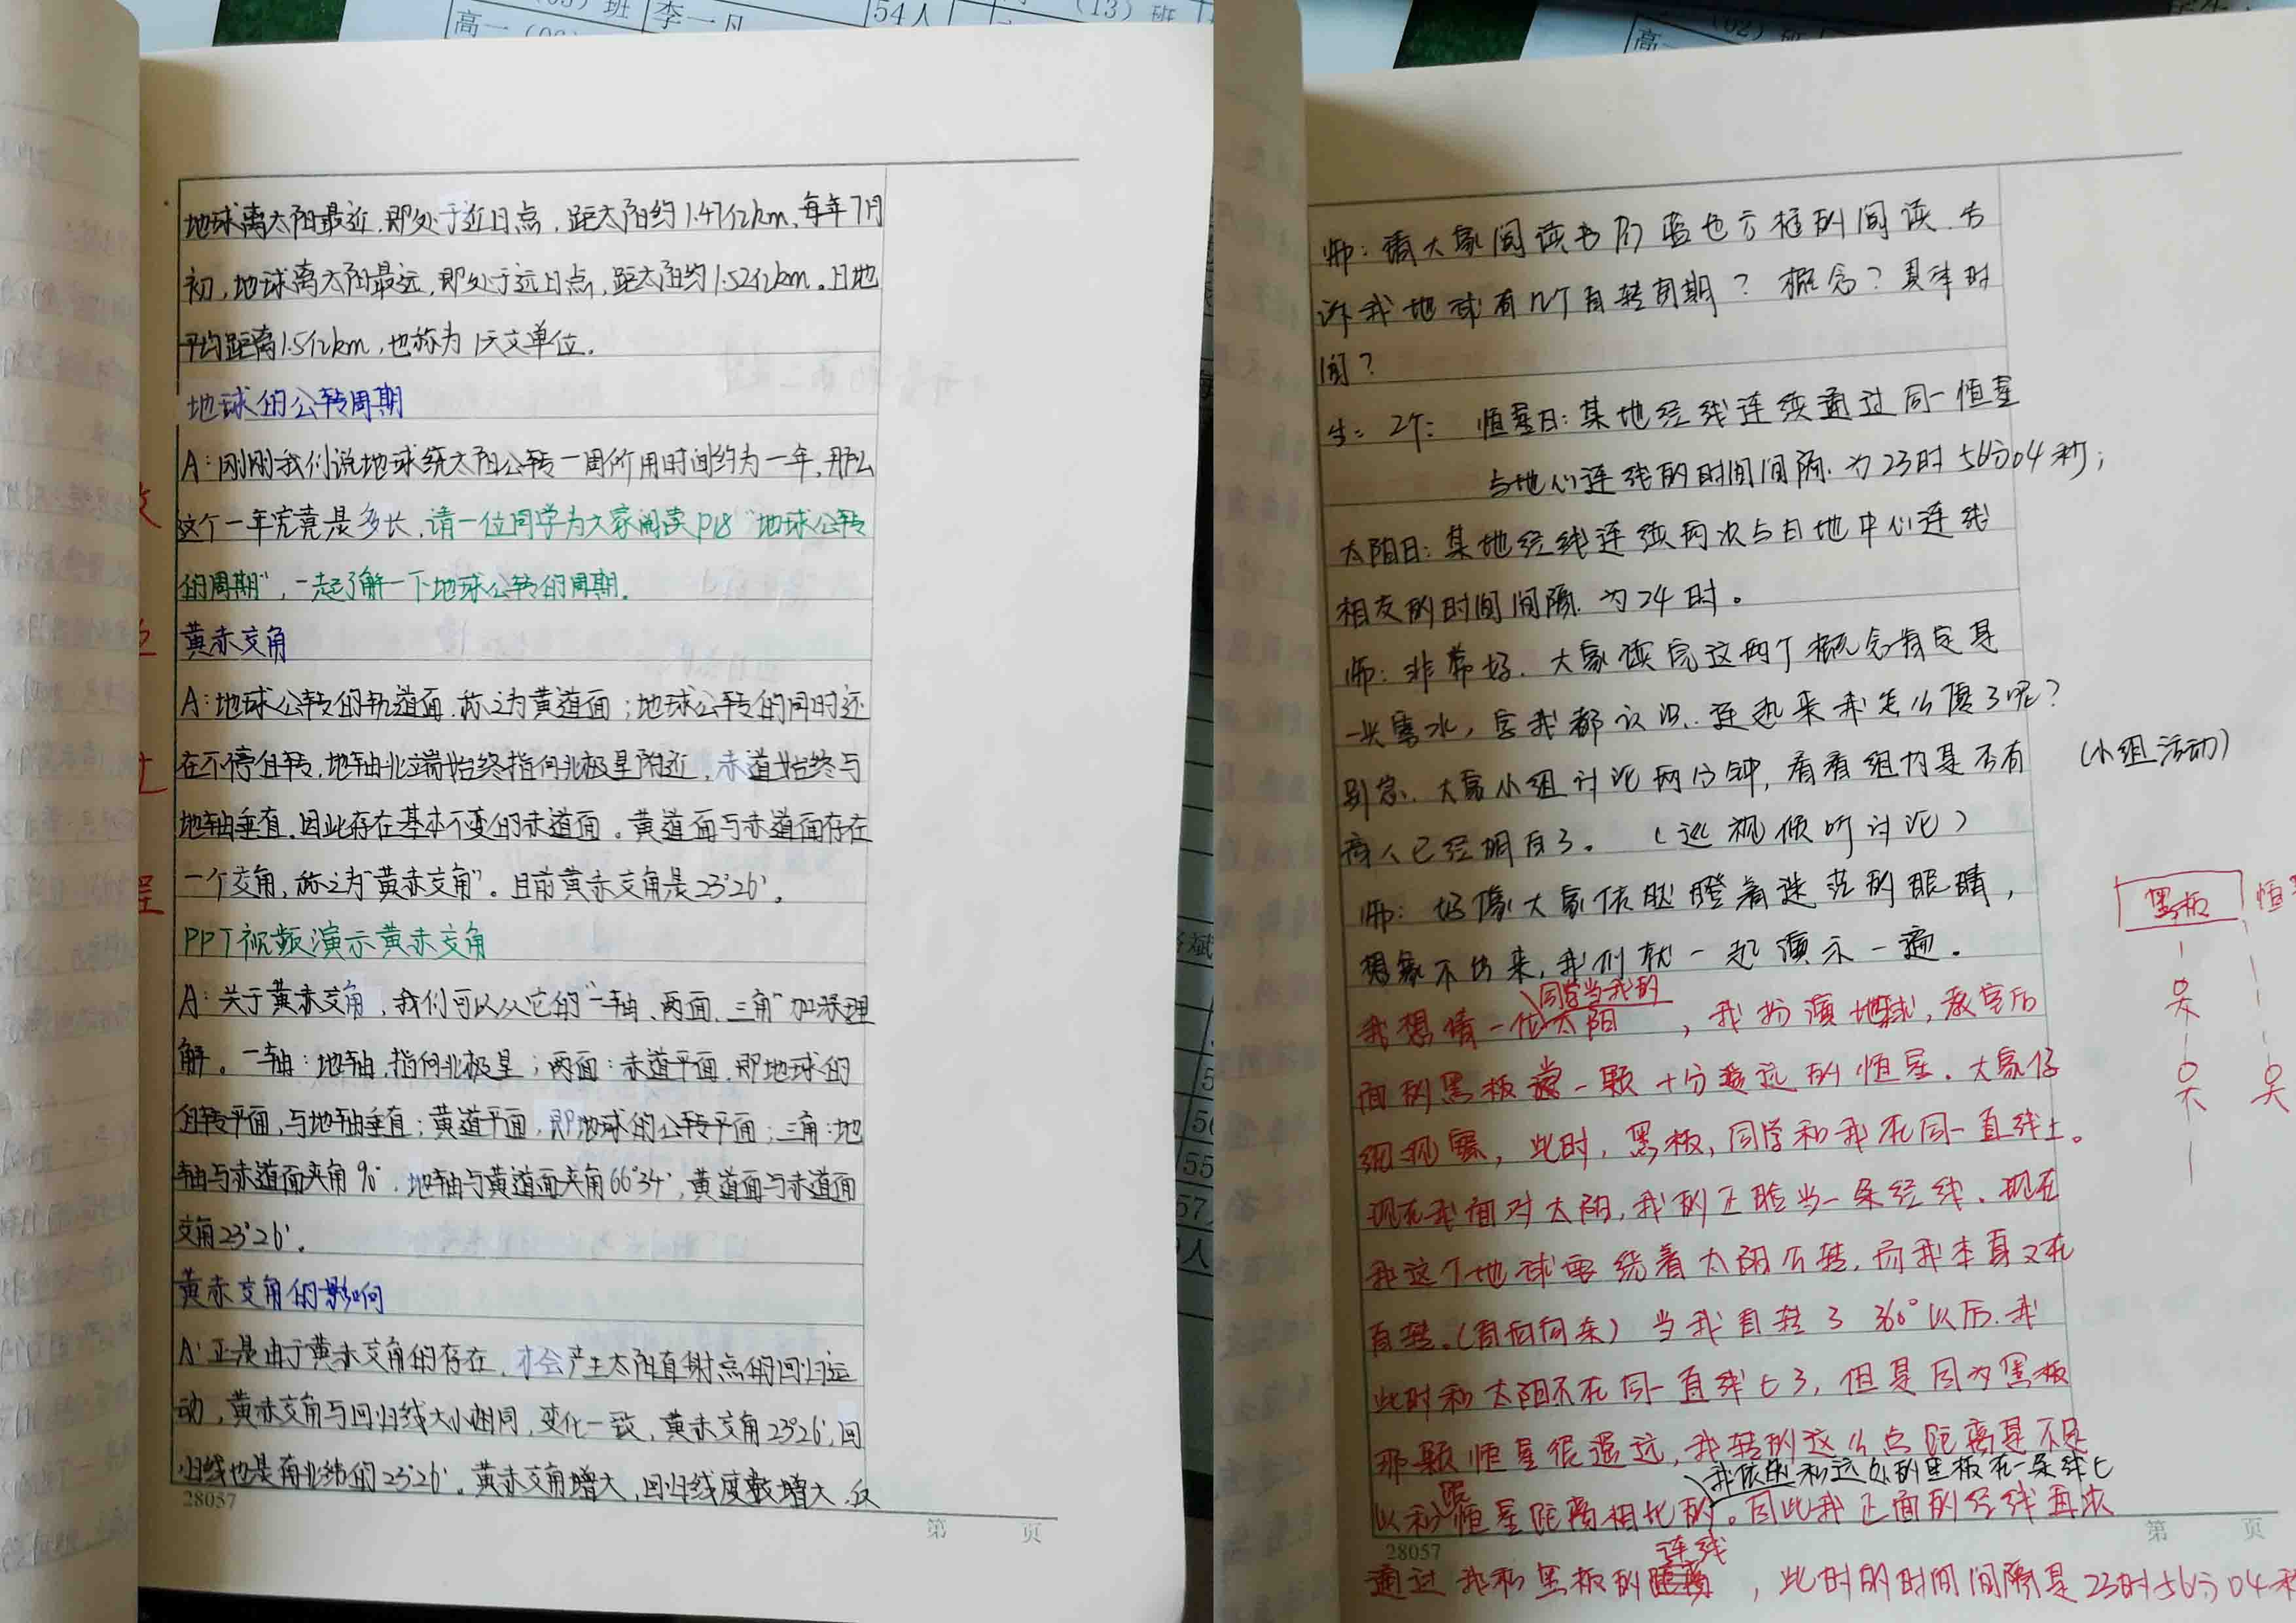 高一
李一凡
54人
(13)班
地球离太阳最近,即处于近日点,距太阳约1.47亿km,每年7月
初,地球离太阳最远,即处于远日点,距太阳约1.52亿km。日地
平均距离1.5亿km,也称为1天文单位。
地球的公转周期
A:刚刚我们说地球绕太阳公转一周所用时间约为一年,那么
这个一年究竟是多长,请一位同学为大家阅读P18“地球公转
的周期”,一起了解一下地球公转的周期。
黄赤交角
A:地球公转的轨道面,称之为黄道面;地球公转的同时还
在不停自转,地轴北端始终指向北极星附近,赤道始终与
地轴垂直,因此存在基本不变的赤道面。黄道面与赤道面存在
一个交角,称之为“黄赤交角”。目前黄赤交角是23°26′。
PPT视频演示黄赤交角
A:关于黄赤交角,我们可以从它的“一轴、两面、三角”加深理
解。一轴:地轴,指向北极星;两面:赤道平面,即地球的
自转平面,与地轴垂直;黄道平面,即地球的公转平面;三角:地
轴与赤道面夹角90°,地轴与黄道面夹角66°34′,黄道面与赤道面
交角23°26′。
黄赤交角的影响
A:正是由于黄赤交角的存在,才会产生太阳直射点的回归运
动,黄赤交角与回归线大小相同,变化一致,黄赤交角23°26′,回
归线也是南北纬的23°26′。黄赤交角增大,回归线度数增大,反
28057
第 页
程
师:请大家阅读书历蓝色方框的阅读,告
诉我地球有几个自转周期?概念?具体时
间?
生:2个:恒星日:某地经线连续通过同一恒星
与地心连线的时间间隔,为23时56分04秒;
太阳日:某地经线连续两次与日地中心连线
相交的时间间隔,为24时。
师:非常好,大家读完这两个概念肯定是
一头雾水,字我都认识,连起来我怎么傻了呢?
别急,大家小组讨论两分钟,看看组内是否有
(小组活动)
高人已经明白了。(巡视倾听讨论)
师:好像大家依然瞪着迷茫的眼睛,
想象不出来,我们就一起演示一遍。
同学当我的
我想请一位太阳,我扮演地球,教室后
面的黑板当一颗十分遥远的恒星。大家仔
细观察,此时,黑板,同学和我在同一直线上。
现在我面对太阳,我的正脸当一条经线。现在
我这个地球要绕着太阳公转,而我本身又在
自转。(自西向东)当我自转了360°以后,我
此时和太阳不在同一直线上了,但是因为黑板
那颗恒星很遥远,我转的这么点距离是不足
我依然和远处的黑板在一条线上
以和跟恒星距离相比的。因此我正面的经线再次
连线
通过我和黑板的,此时的时间间隔是23时56分04秒
28057
第 页
黑板
恒